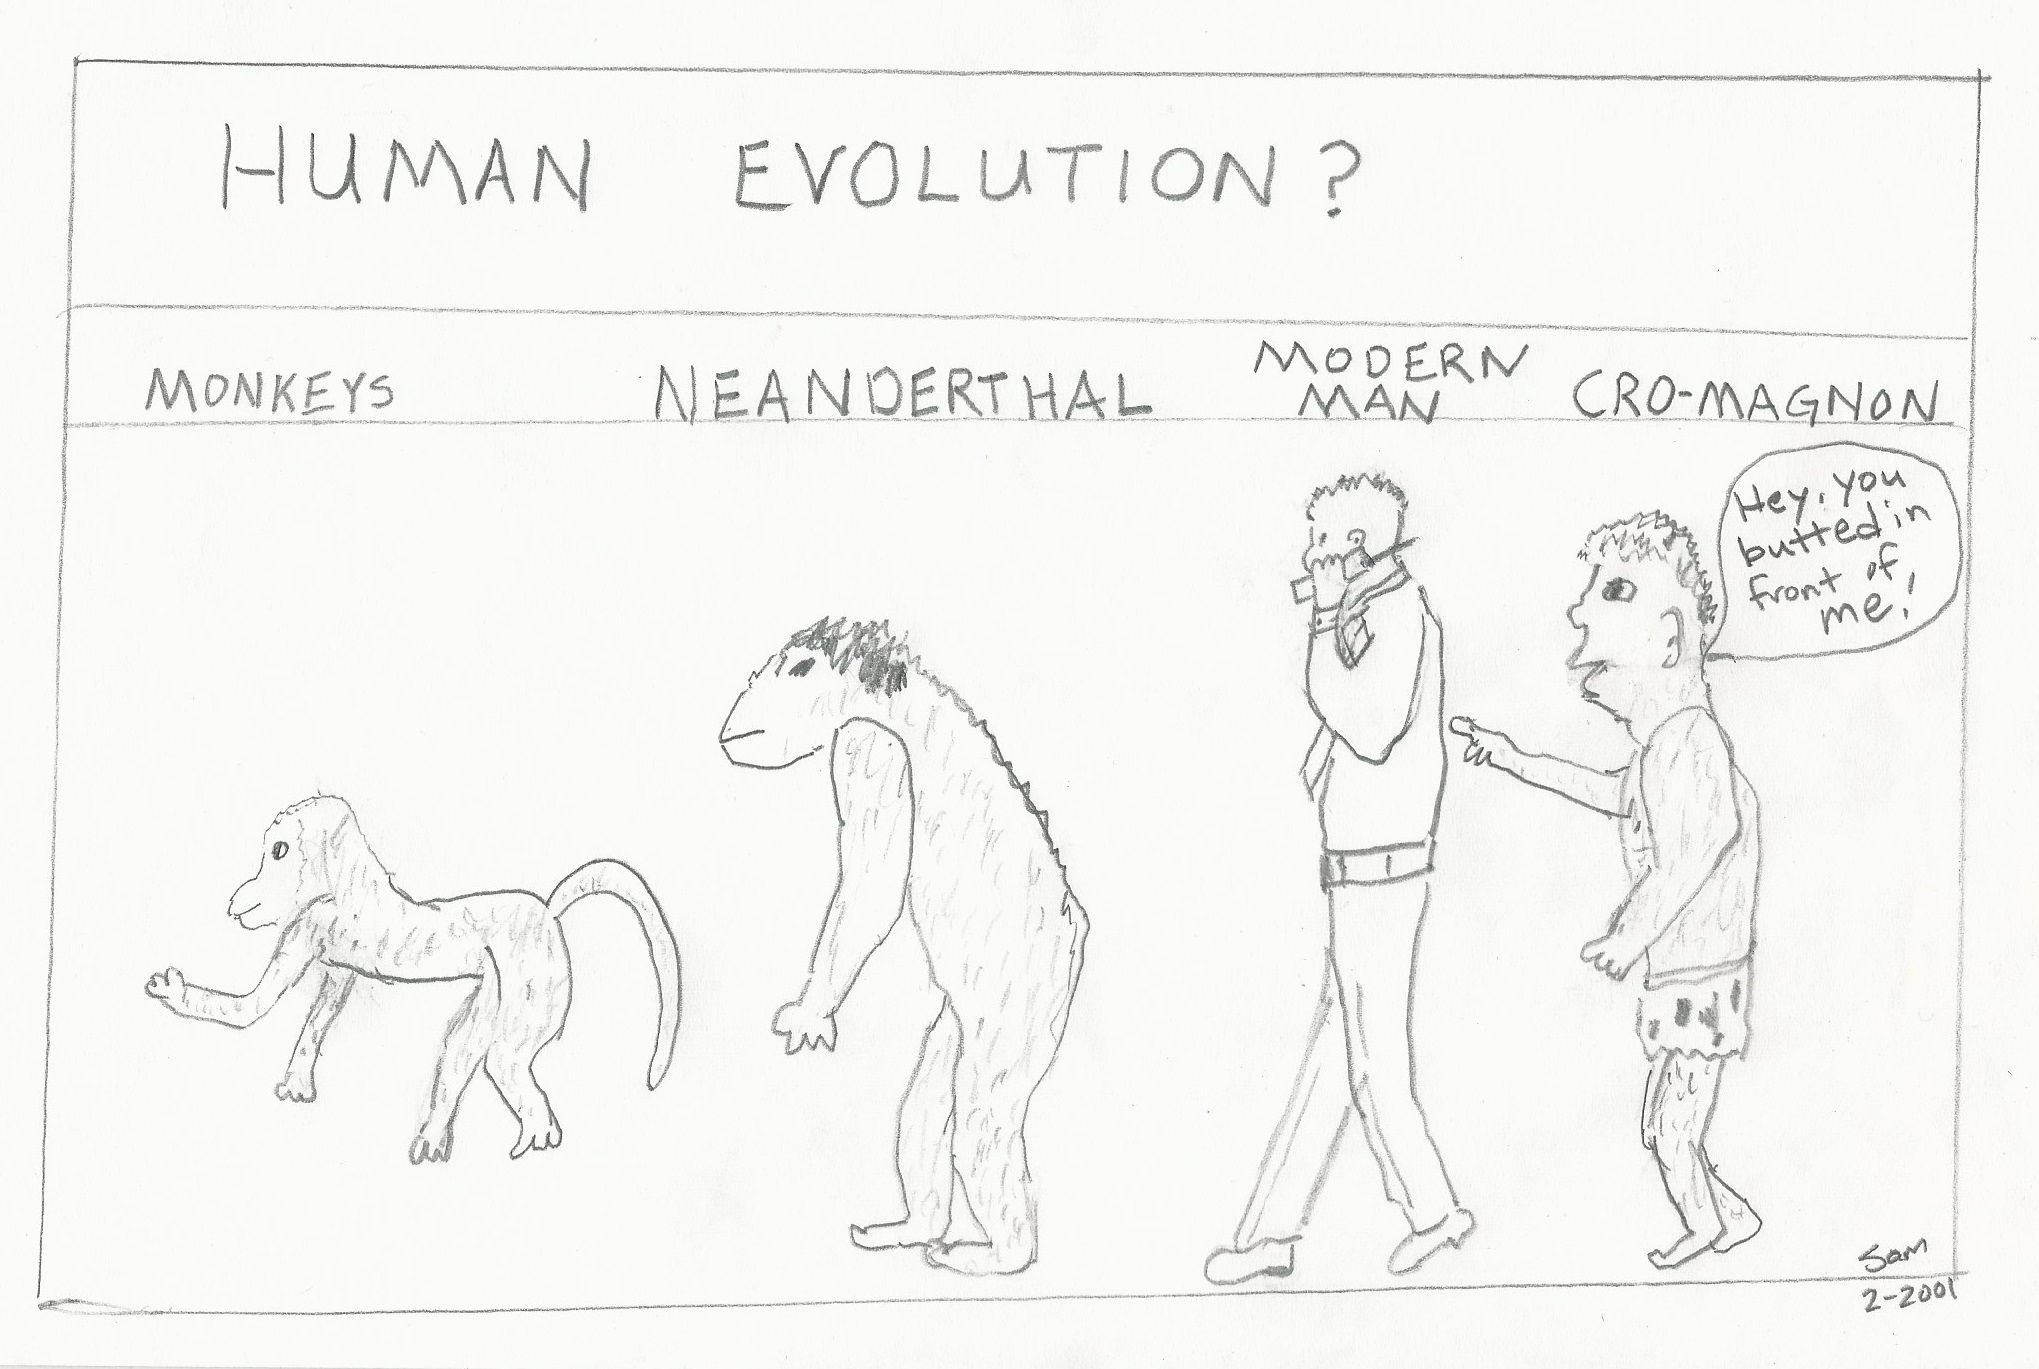 HUMAN EVOLUTION?
MONKEYS
NEANDERTHAL
MODERN
MAN
CRO-MAGNON
Hey, you
butted in
front of
me!
Sam
2-2001